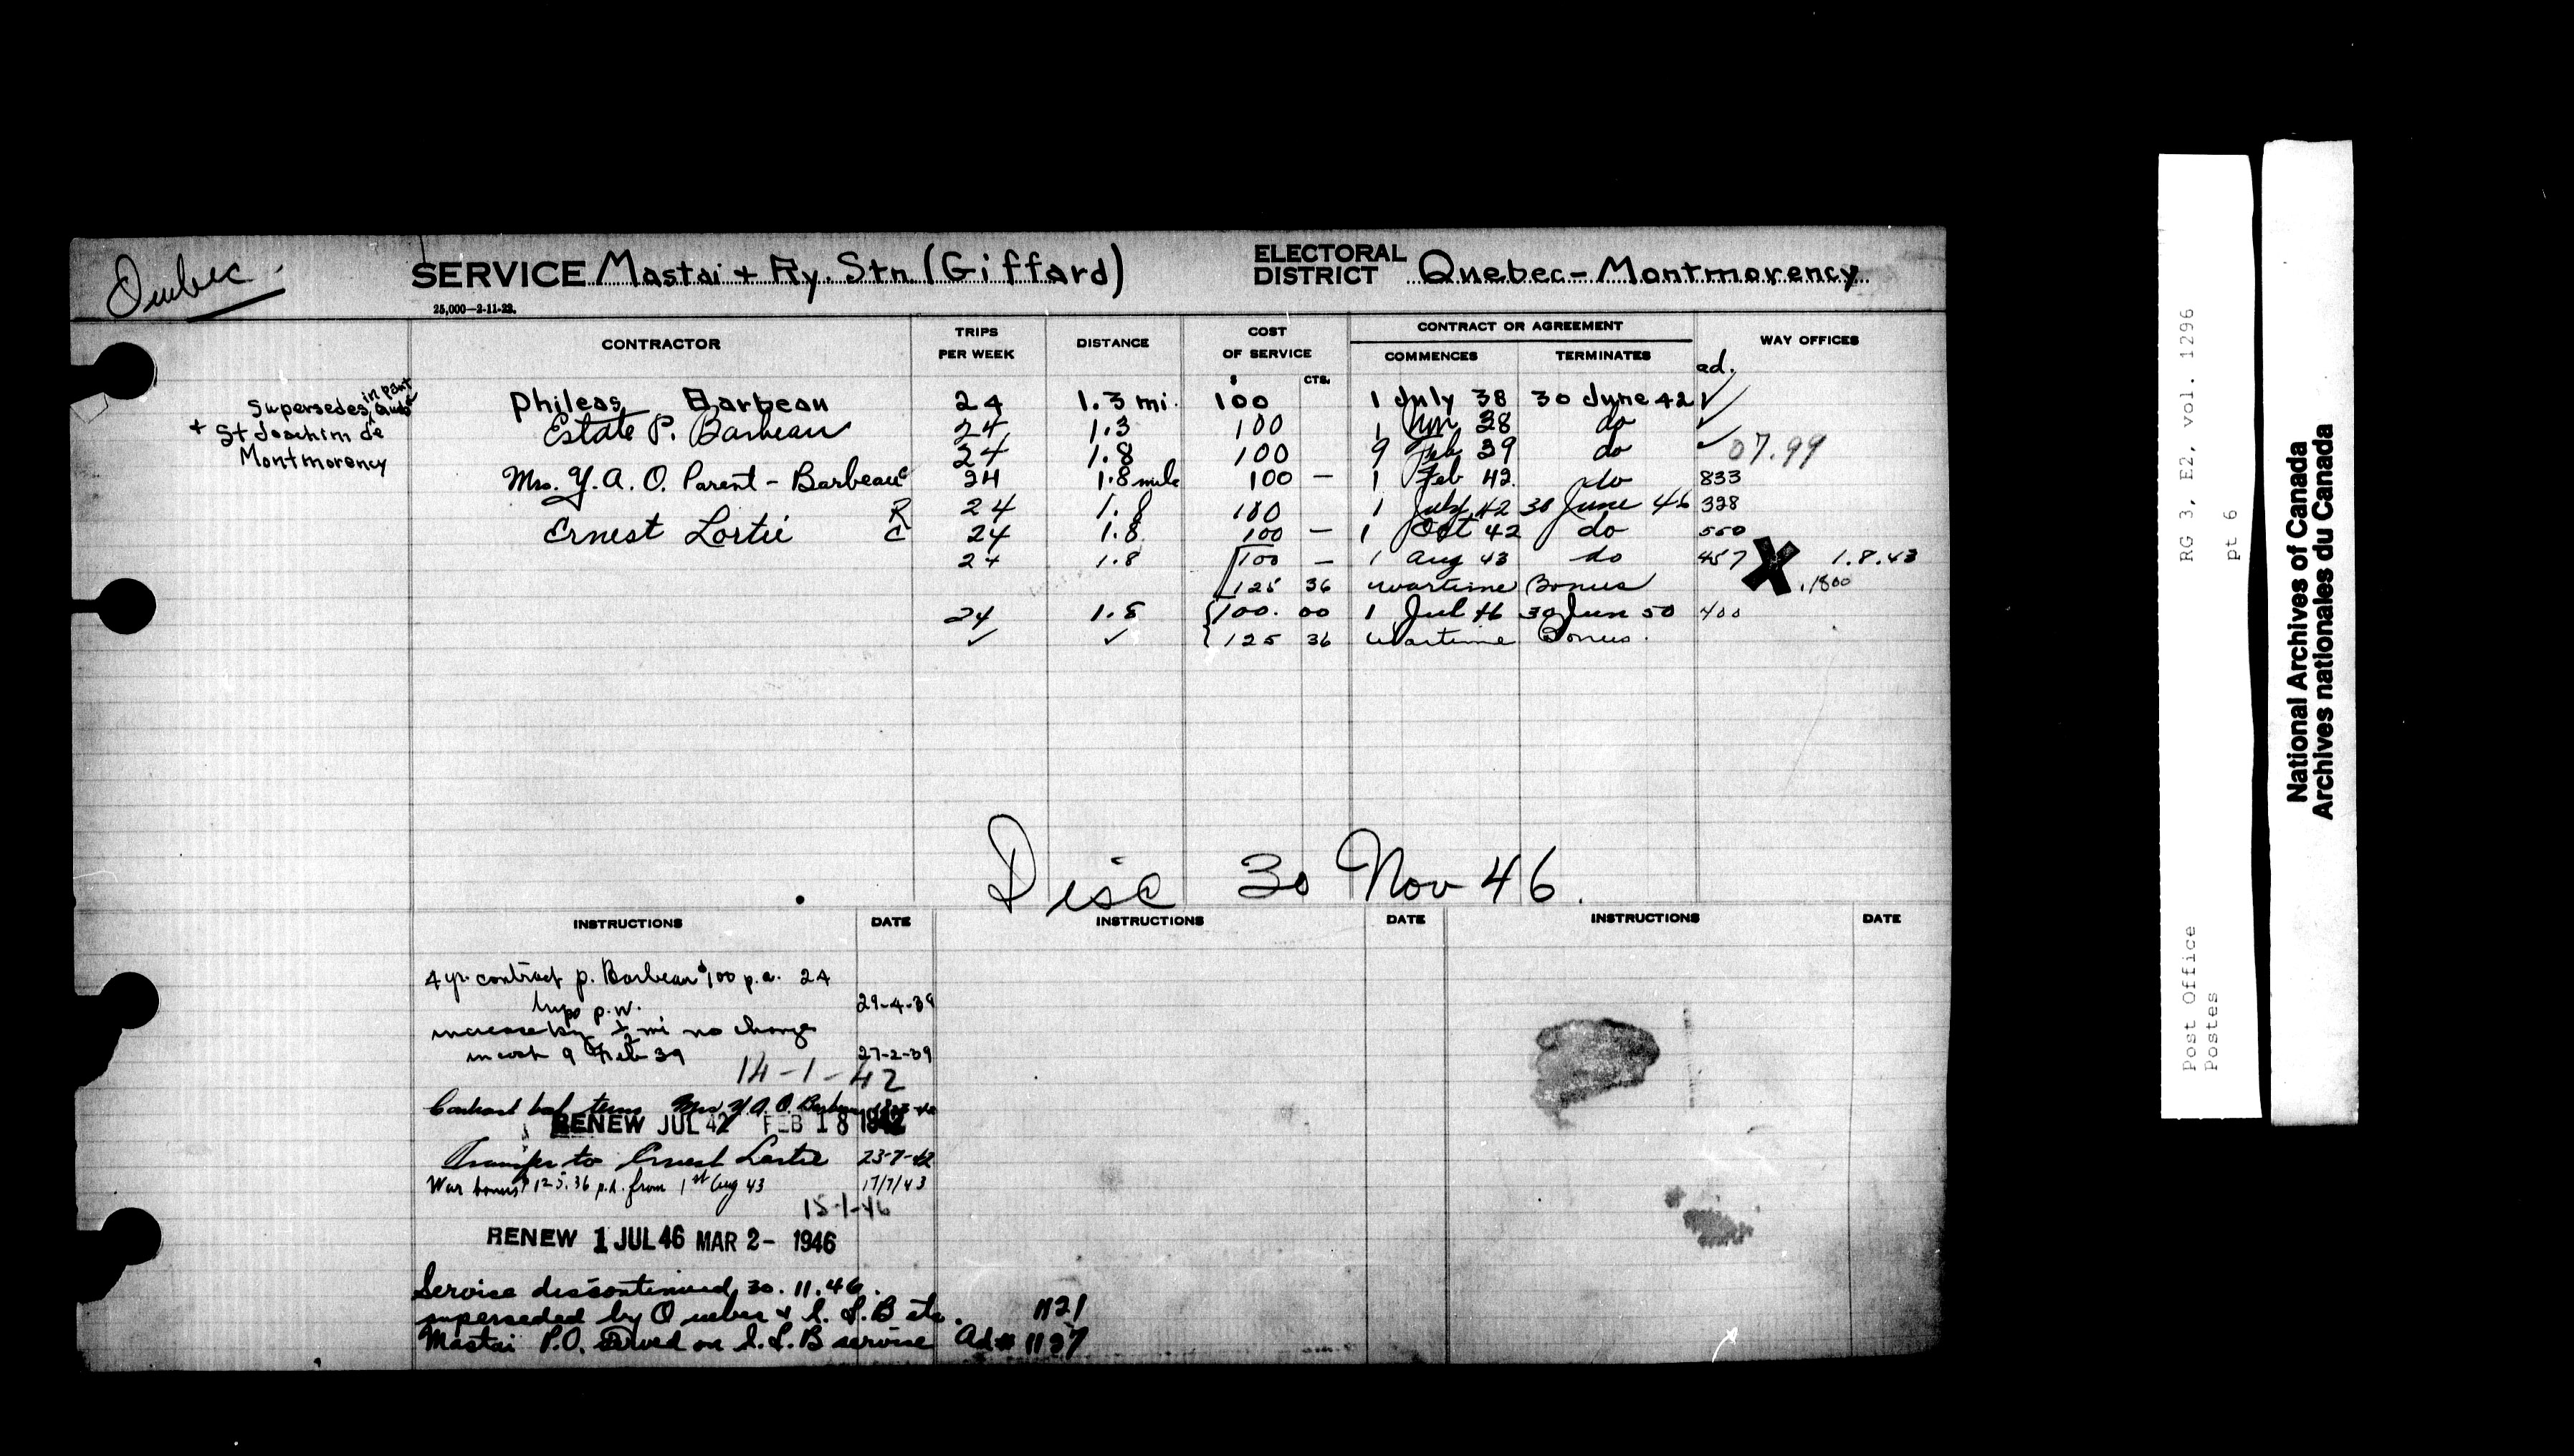 Quebec
SERVICE Mastai & Ry. Stn (Giffard)
ELECTORAL DISTRICT Quebec-Montmorency
25,000—2-11-22.
CONTRACTOR TRIPS PER WEEK DISTANCE COST OF SERVICE CONTRACT OR AGREEMENT WAY OFFICES
COMMENCES TERMINATES
$ CTS. ad.
Supersedes in part
+ St Joachim de
Montmorency
Phileas Barbeau 24 1.3 mi. 100 1 July 38 30 June 42 ✓
Estate P. Barbeau 24 1.3 100 1 Nov 38 do ✓
24 1.8 100 9 Feb 39 do ✓ 07.99
Mrs. Y. A. O. Parent - Barbeau c 24 1.8 mile 100 — 1 Feb 42. do 833
R 24 1.8 100 1 July 42 30 June 46 328
Ernest Lortie c 24 1.8 100 — 1 Oct 42 do 550
24 1.8 100 — 1 Aug 43 do 457 X 1.8.43
125 36 wartime Bonus .1800
24 1.8 100. 00 1 Jul 46 30 Jun 50 400
✓ ✓ 125 36 Wartime Bonus.
Disc 30 Nov 46.
INSTRUCTIONS DATE INSTRUCTIONS DATE INSTRUCTIONS DATE
4 yr. contract p. Barbeau $100 p.a. 24
trips p.w. 29-4-39
increase by ½ mi no change
in cost 9 Feb 39 27-2-39
14-1-42
Contract bal term Mrs Y. A. O. Barbeau
RENEW JUL 42 FEB 18 1942
Transfer to Ernest Lortie 23-7-42
War bonus $125.36 p.a. from 1st Aug 43 17/7/43
15-1-46
RENEW 1 JUL 46 MAR 2- 1946
Service discontinued 30.11.46.
superseded by Quebec & S. L. B etc. 1121
Mastai P.O. Served on S. L. B service Ad# 1137
RG 3, E2, vol. 1296
pt 6
Post Office
Postes
National Archives of Canada
Archives nationales du Canada